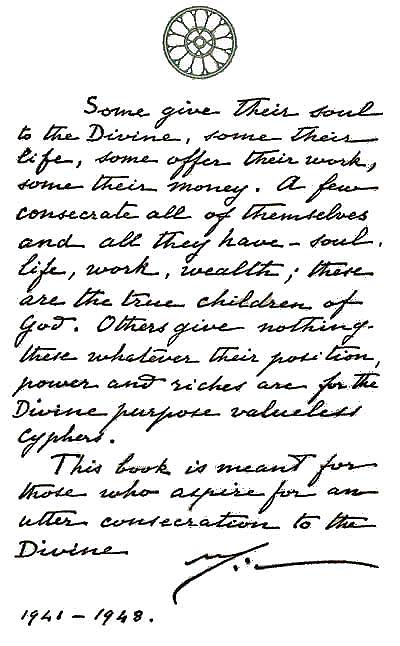 Some give their soul
to the Divine, some their
life, some offer their work,
some their money. A few
consecrate all of themselves
and all they have – soul,
life, work, wealth; these
are the true children of
God. Others give nothing –
these whatever their position,
power and riches are for the
Divine purpose valueless
cyphers.
This book is meant for
those who aspire for an
utter consecration to the
Divine
1941 – 1948.